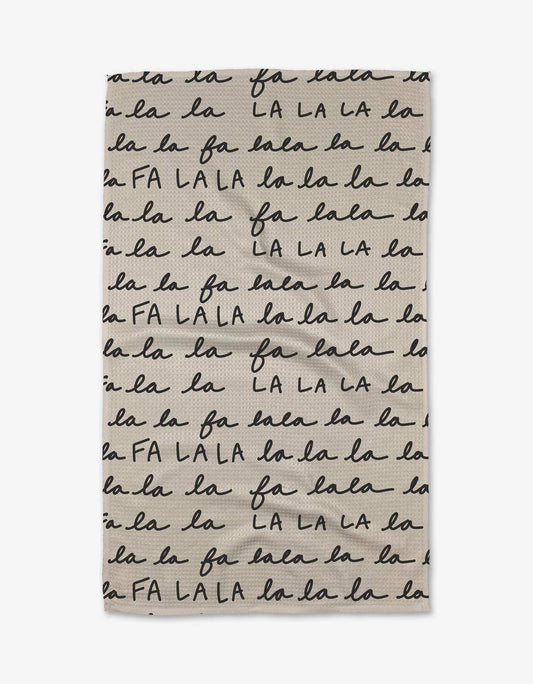 la la la fa lala la
fa la la LA LA LA la
la la fa lala la la l
la FA LA LA la la la la
la la la fa lala la
fa la la LA LA LA la
la la fa lala la la l
la FA LA LA la la la la
la la la fa lala la
fa la la LA LA LA la
la la fa lala la la l
la FA LA LA la la la la
la la la fa lala la
fa la la LA LA LA la
la la fa lala la la l
la FA LA LA la la la la